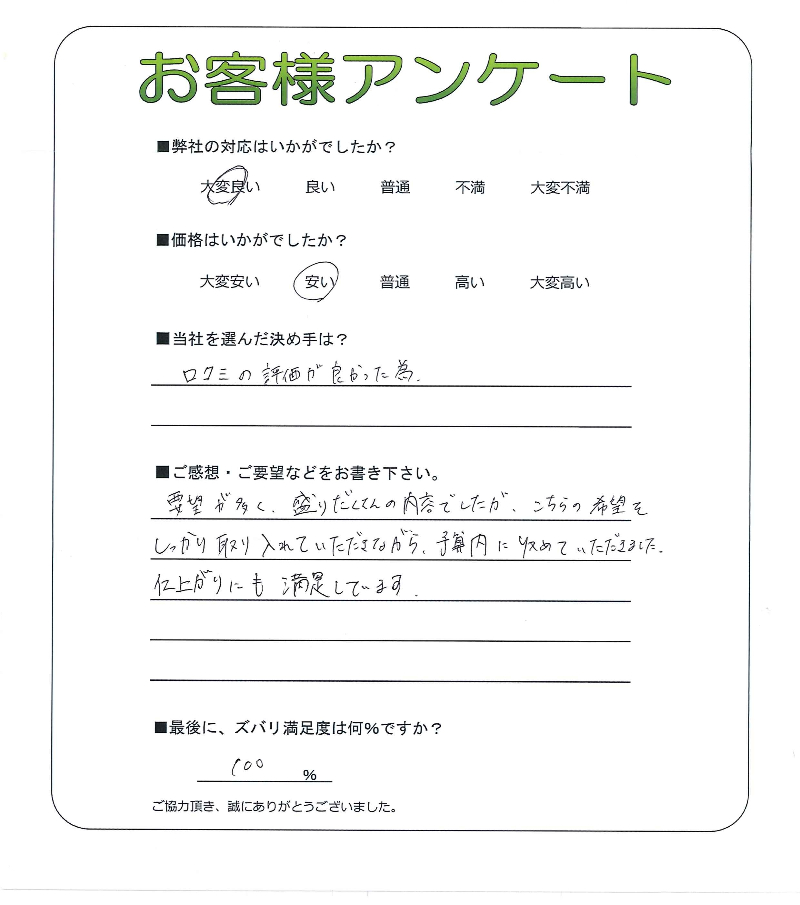 お客様アンケート
■弊社の対応はいかがでしたか？
大変良い 良い 普通 不満 大変不満
■価格はいかがでしたか？
大変安い 安い 普通 高い 大変高い
■当社を選んだ決め手は？
口クミの評価が良かった為.
■ご感想・ご要望などをお書き下さい。
要望が多く、盛りだくさんの内容でしたが、こちらの希望を
しっかり取り入れていただきながら、予算内に収めていただきました.
仕上がりにも満足しています.
■最後に、ズバリ満足度は何%ですか？
100 %
ご協力頂き、誠にありがとうございました。